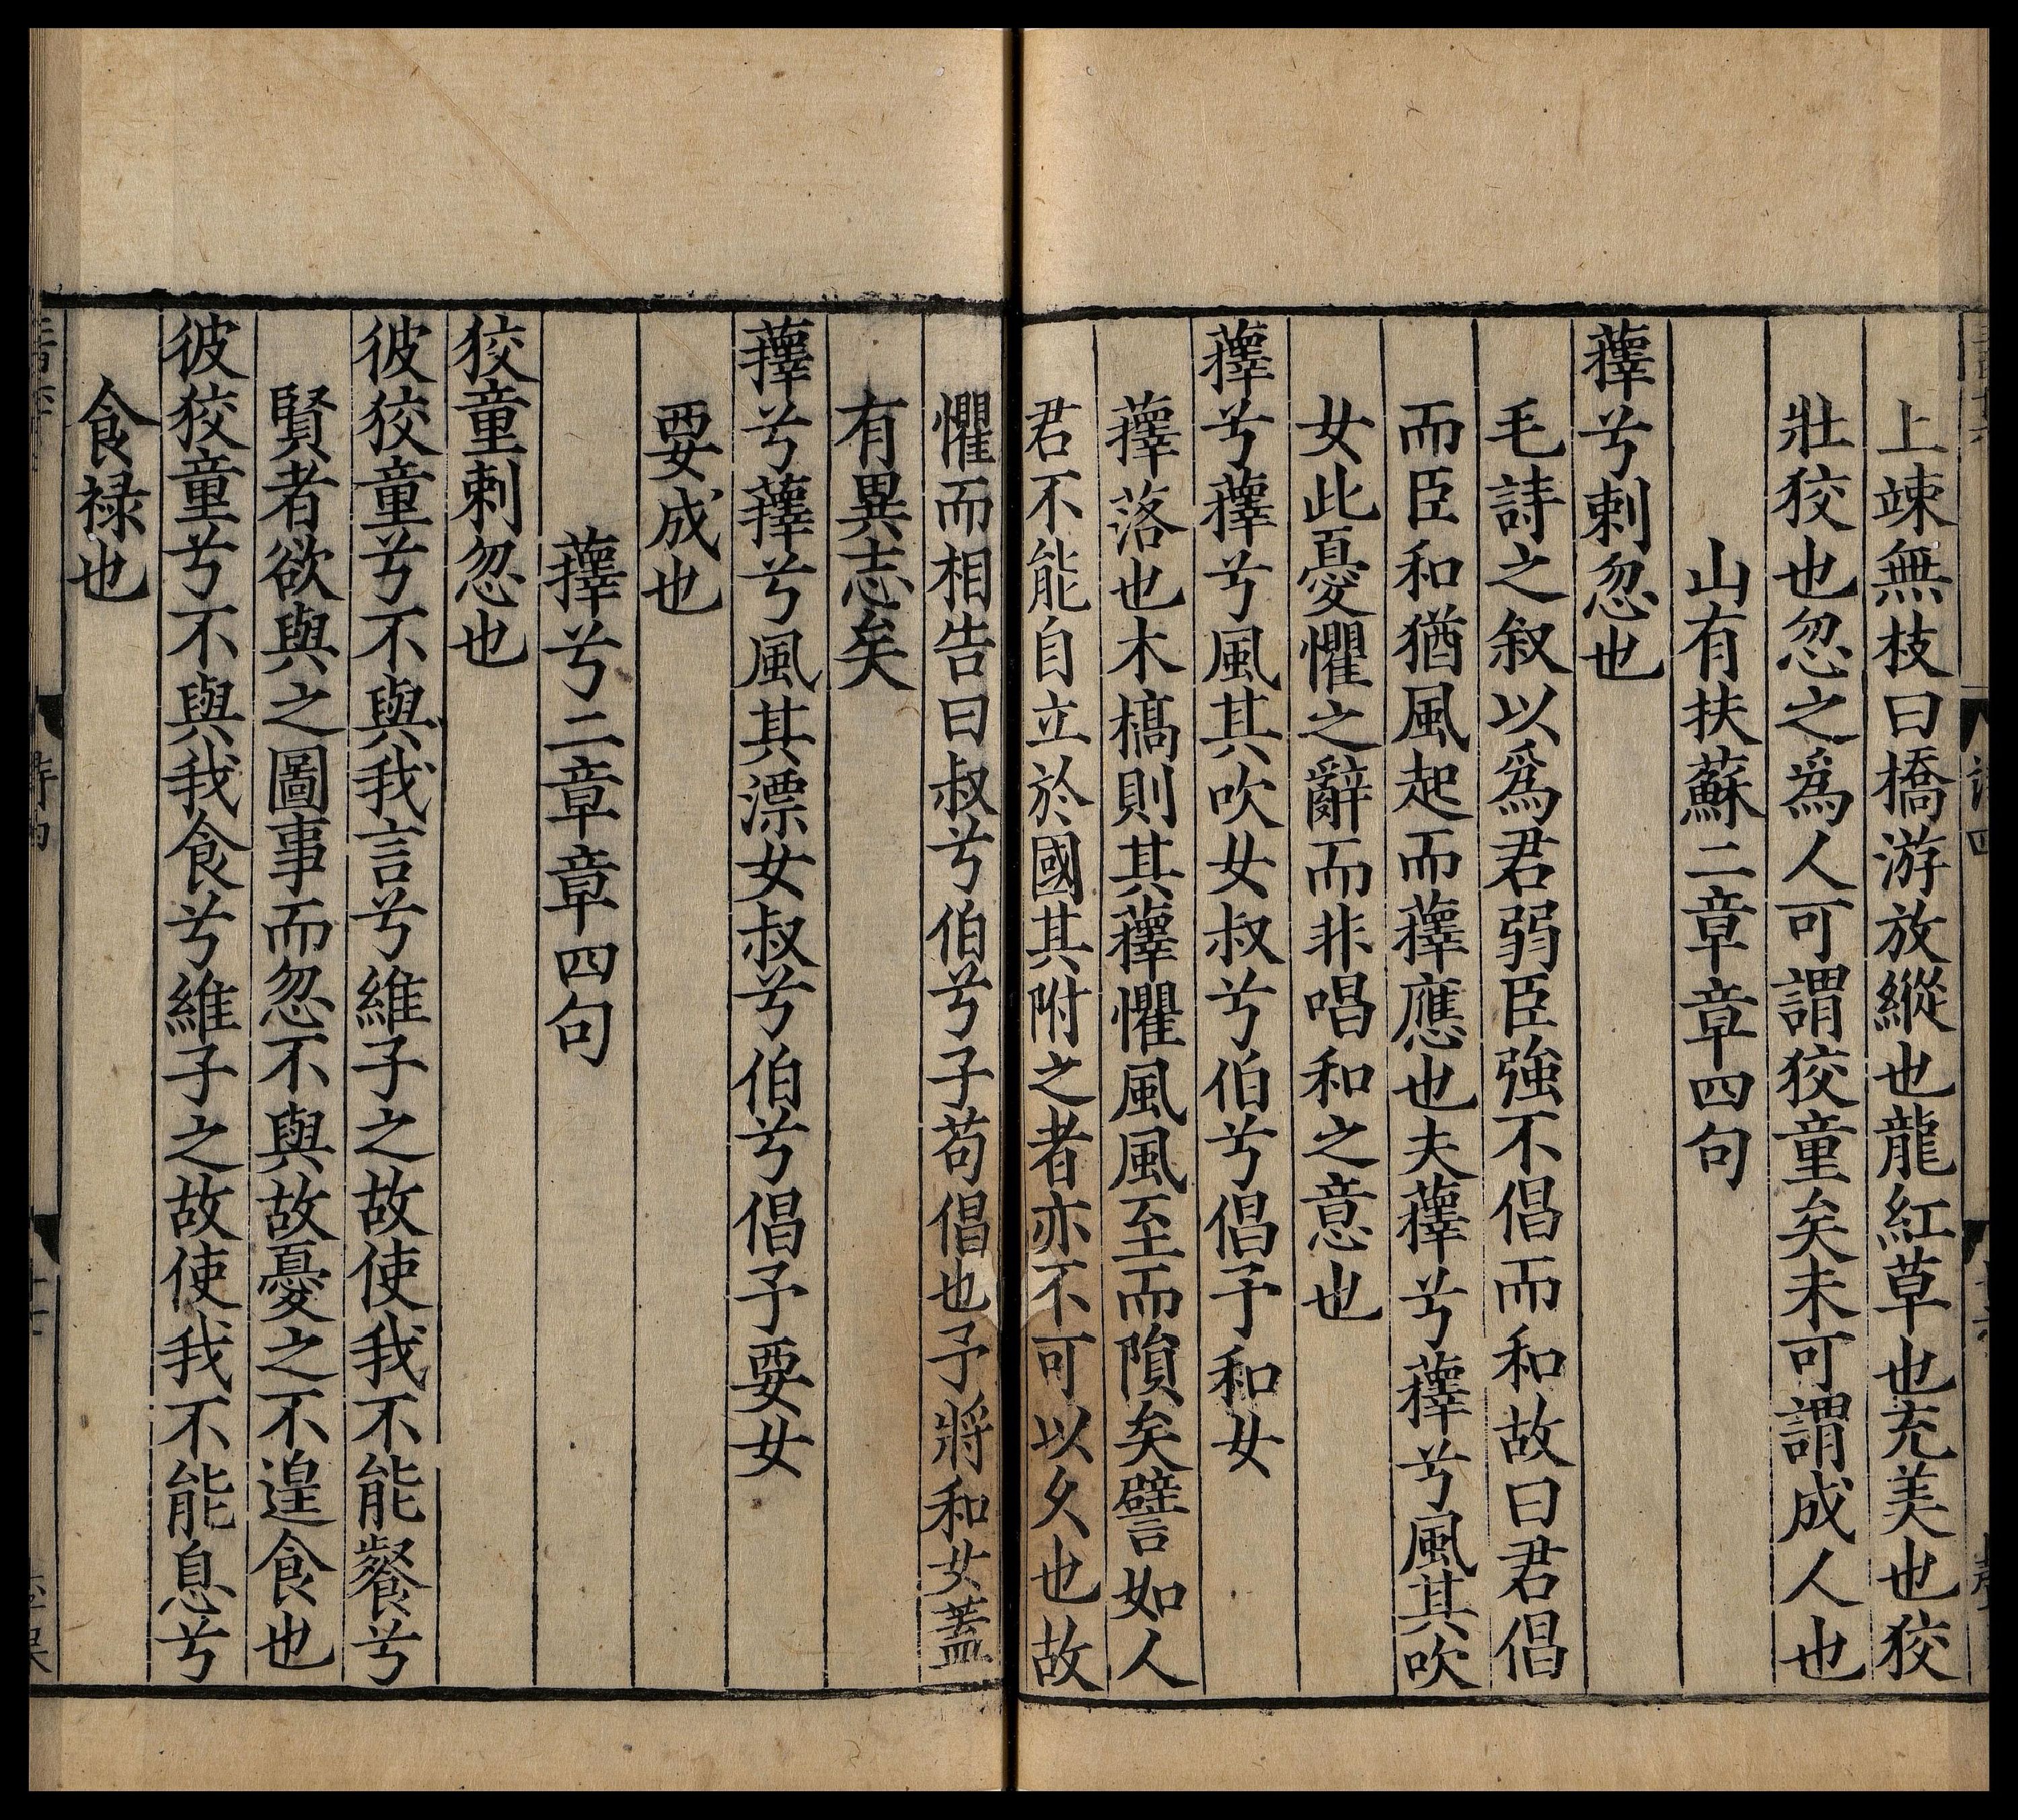 上竦無枝曰橋游放縱也龍紅草也充美也狡
壯狡也忽之爲人可謂狡童矣未可謂成人也
山有扶蘇二章章四句
蘀兮刺忽也
毛詩之叙以爲君弱臣強不倡而和故曰君倡
而臣和猶風起而蘀應也夫蘀兮蘀兮風其吹
女此憂懼之辭而非唱和之意也
蘀兮蘀兮風其吹女叔兮伯兮倡予和女
蘀落也木槁則其蘀懼風風至而隕矣譬如人
君不能自立於國其附之者亦不可以久也故
懼而相告曰叔兮伯兮子苟倡也予將和女蓋
有異志矣
蘀兮蘀兮風其漂女叔兮伯兮倡予要女
要成也
蘀兮二章章四句
狡童刺忽也
彼狡童兮不與我言兮維子之故使我不能餐兮
賢者欲與之圖事而忽不與故憂之不遑食也
彼狡童兮不與我食兮維子之故使我不能息兮
食禄也